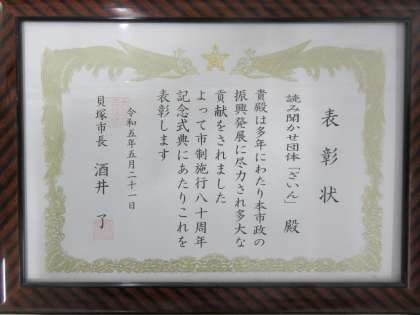 表彰状
読み聞かせ団体「ざいん」 殿
貴殿は多年にわたり本市政の
振興発展に尽力され多大な
貢献をされました
よって市制施行八十周年
記念式典にあたりこれを
表彰します
令和五年五月二十一日
貝塚市長 酒井 了